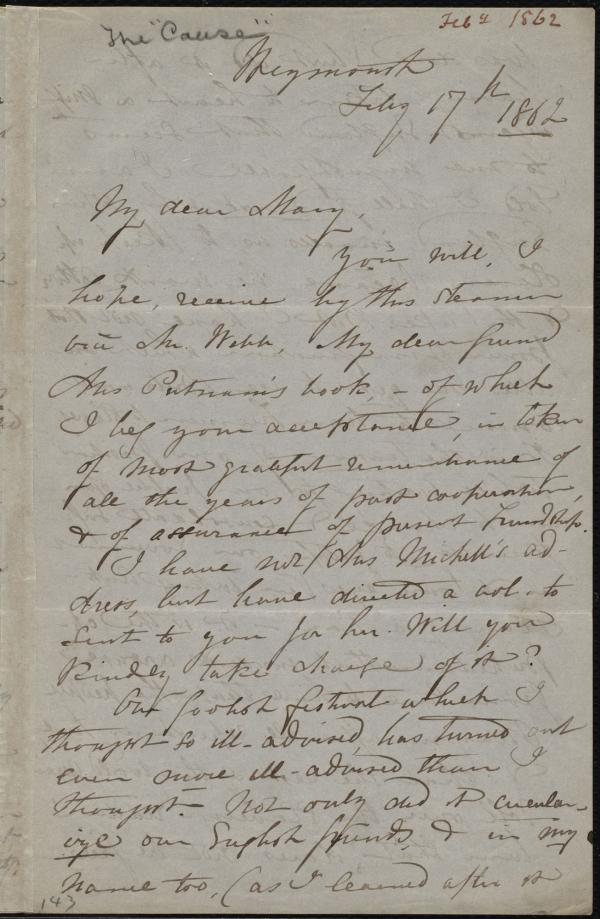 The "Cause"
Feby 1862
Weymouth
Feby 17th 1862
My dear Mary,
You will, I
hope, receive by this steamer
via Mr. Webb, My dear friend
Mrs Putnam's book, - of which
I beg your acceptance, in token
of most grateful remembrance of
all the years of past cooperation,
& of assurance of present friendship.
I have not Mrs Michell's ad-
dress, but have directed a vol. to
sent to you for her. Will you
kindly take charge of it?
Our foolish festival which I
thought so ill-advised, has turned out
even more ill-advised than I
thought. Not only did it circular-
ize our English friends, & in my
name too, (as I learned after it
143